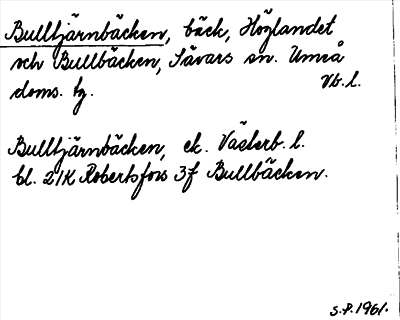 Bulltjärnbäcken, bäck, Höglandet
och Bullbäcken, Sävars sn. Umeå
doms. hg. Vb. l.
Bulltjärnbäcken, ek. Västerb. l.
bl. 21K Robertsfors 3f Bullbäcken.
S.P. 1961.